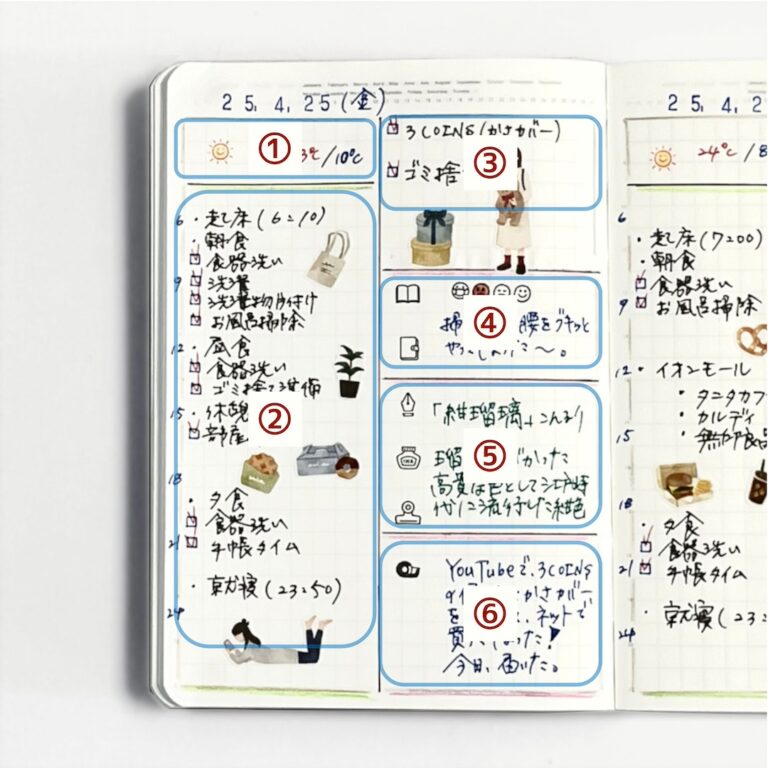 25.4.25(金)
①
3℃/10℃
6・起床(6:10)
・朝食
食器洗い
9 洗濯
洗濯物片付け
お風呂掃除
12・昼食
食器洗い
ゴミ捨て準備
15・休憩
②
部屋
18
・夕食
食器洗い
21 手帳タイム
・就寝(23:50)
24
3COINS(かさカバー)
③
ゴミ捨
④
掃 腰をグキッと
⑤
「紺瑠璃」こんるり
瑠 がかった
高貴な色として江戸時
代に流行した紺色
⑥
YouTubeで、3COINS
かさカバー
を ネットで
買 った!
今日、届いた。
25.4.2
24℃/8
6
・起床(7:00)
・朝食
食器洗い
9 お風呂掃除
12・イオンモール
・タニタカフ
・カルディ
15 ・無印良品
18
・夕食
食器洗い
21 手帳タイム
・就寝(23:
24